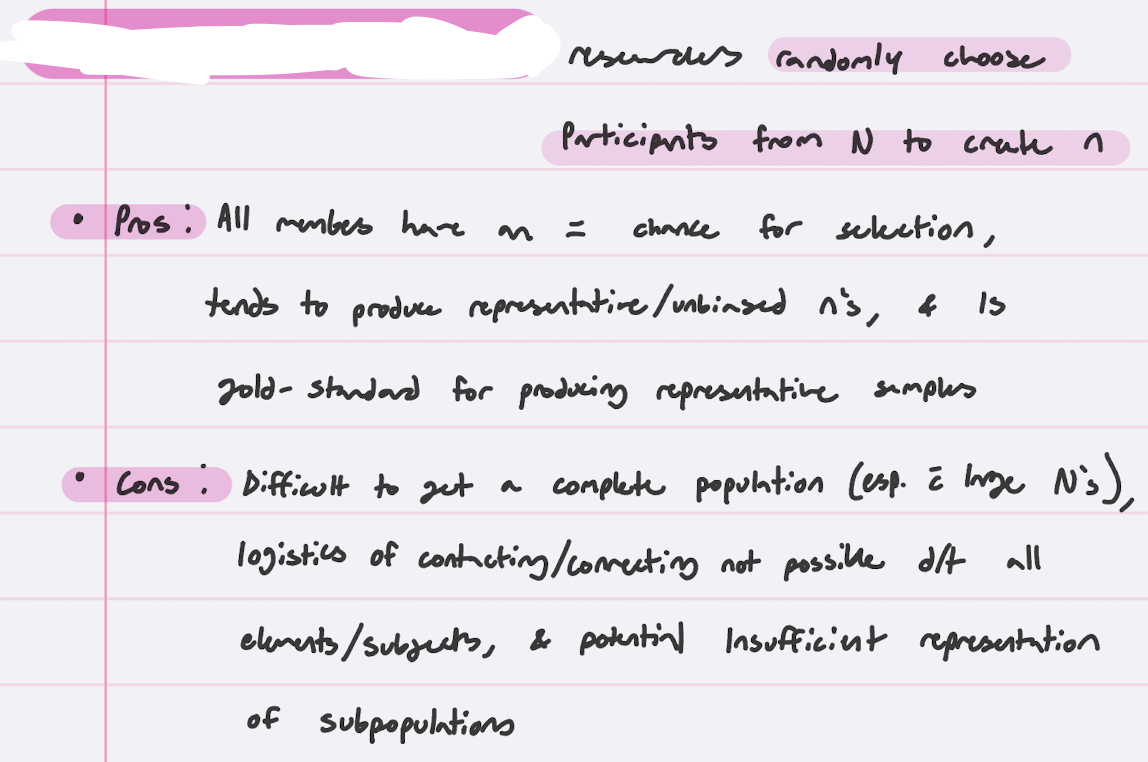 researchers randomly choose
Participants from N to create n
• Pros: All members have an = chance for selection,
tends to produce representative/unbiased n's, & is
gold-standard for producing representative samples
• Cons: Difficult to get a complete population (esp. c̄ large N's),
logistics of contacting/connecting not possible d/t all
elements/subjects, & potential Insufficient representation
of subpopulations